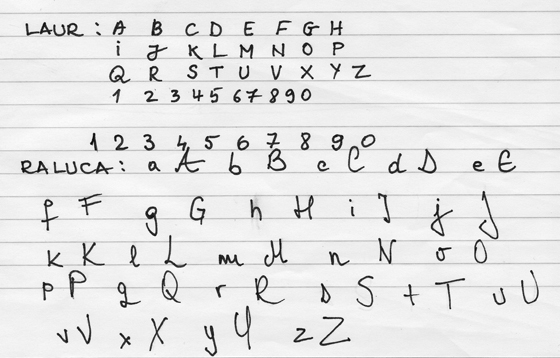 LAUR: A B C D E F G H
i J K L M N O P
Q R S T U V X Y Z
1 2 3 4 5 6 7 8 9 0
1 2 3 4 5 6 7 8 9 0
RALUCA: a A b B c C d D e E
f F g G h H i I j J
k K l L m M n N o O
p P q Q r R s S t T u U
v V x X y Y z Z